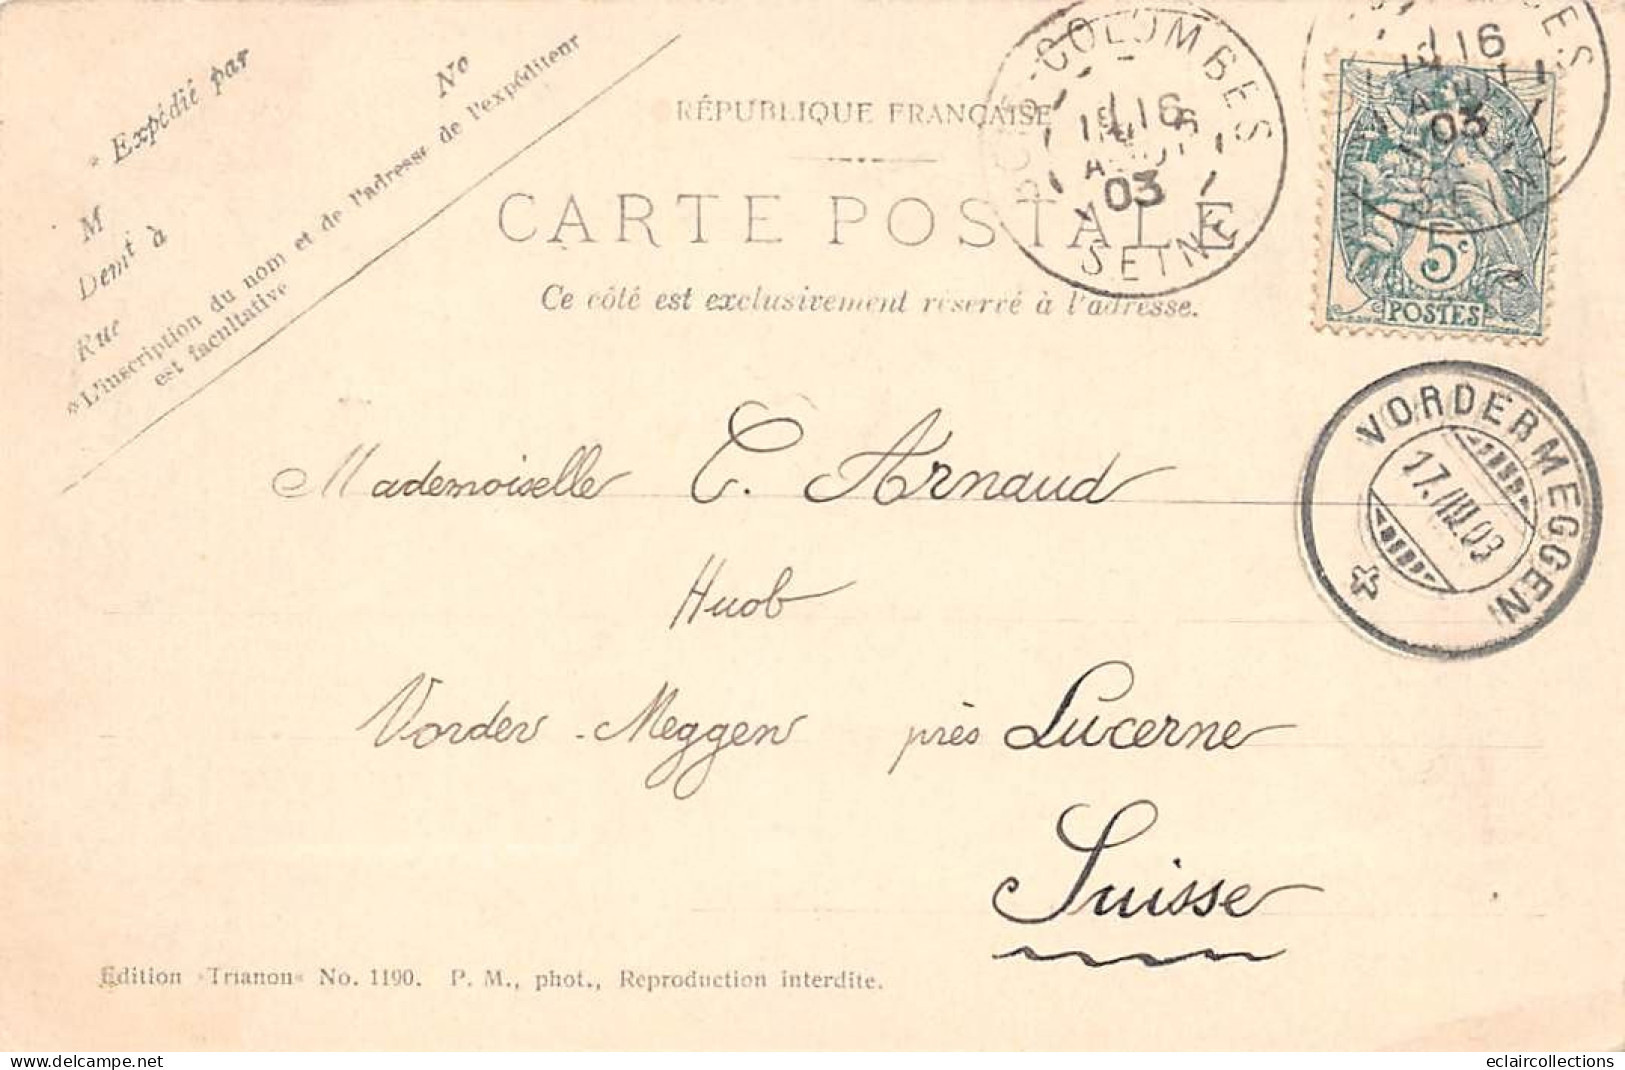 * Expédié par
No
M
Demt à
Rue
*L'inscription du nom et de l'adresse de l'expéditeur
est facultative
RÉPUBLIQUE FRANÇAISE
CARTE POSTALE
Ce côté est exclusivement réservé à l'adresse.
COLOMBES
16
03
SEINE
16
03
5c
POSTES
VORDERMEGGEN
17.VIII.03
Mademoiselle C. Arnaud
Huob
Vorder-Meggen près Lucerne
Suisse
Edition »Trianon« No. 1190. P. M., phot., Reproduction interdite.
www.delcampe.net
eclaircollections